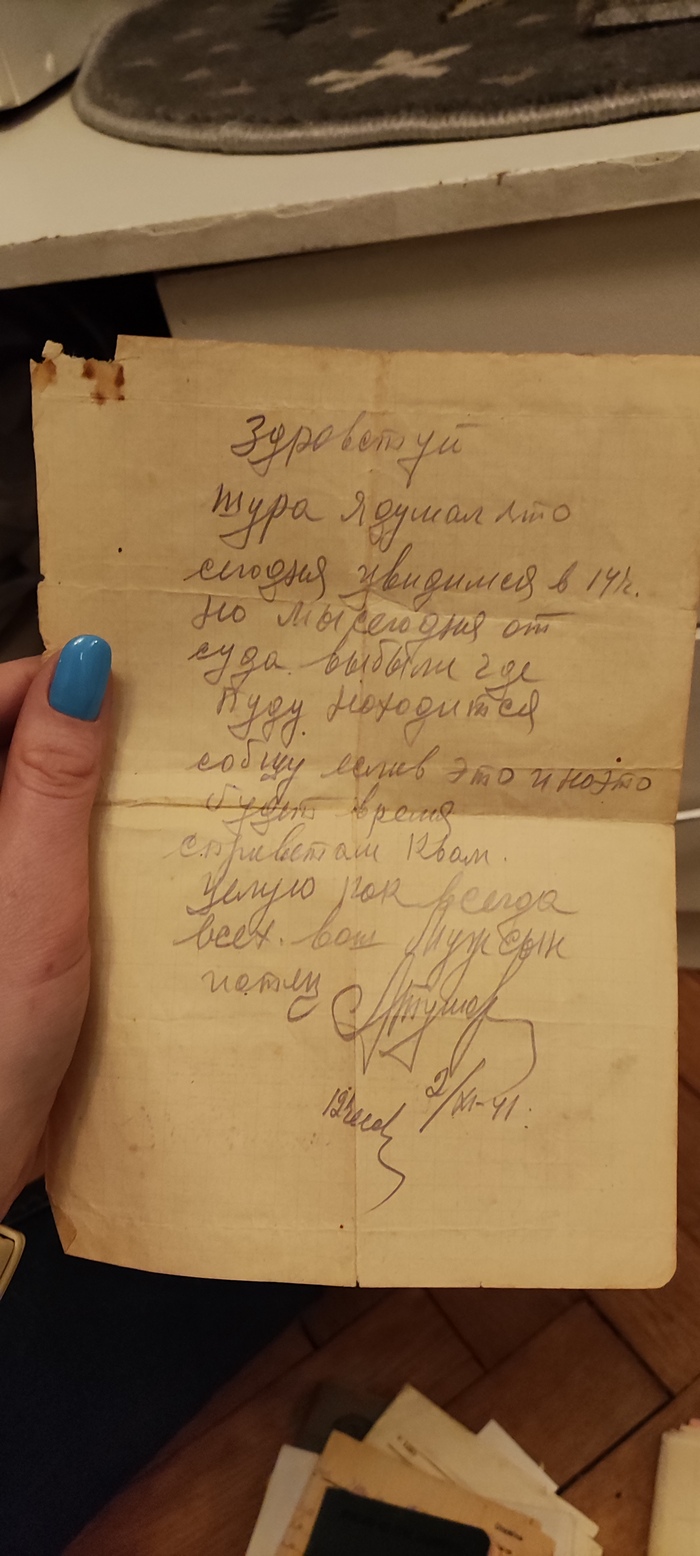 Здравствуй
Шура я думал что
сегодня увидимся в 14 ч.
Но мы сегодня от
суда выбыли где
буду находится
сообщу если в это и на это
будет время
с приветам К вам.
Целую как всегда
всех. ваш Муж сын
и отец
2/XI-41.
12 часов